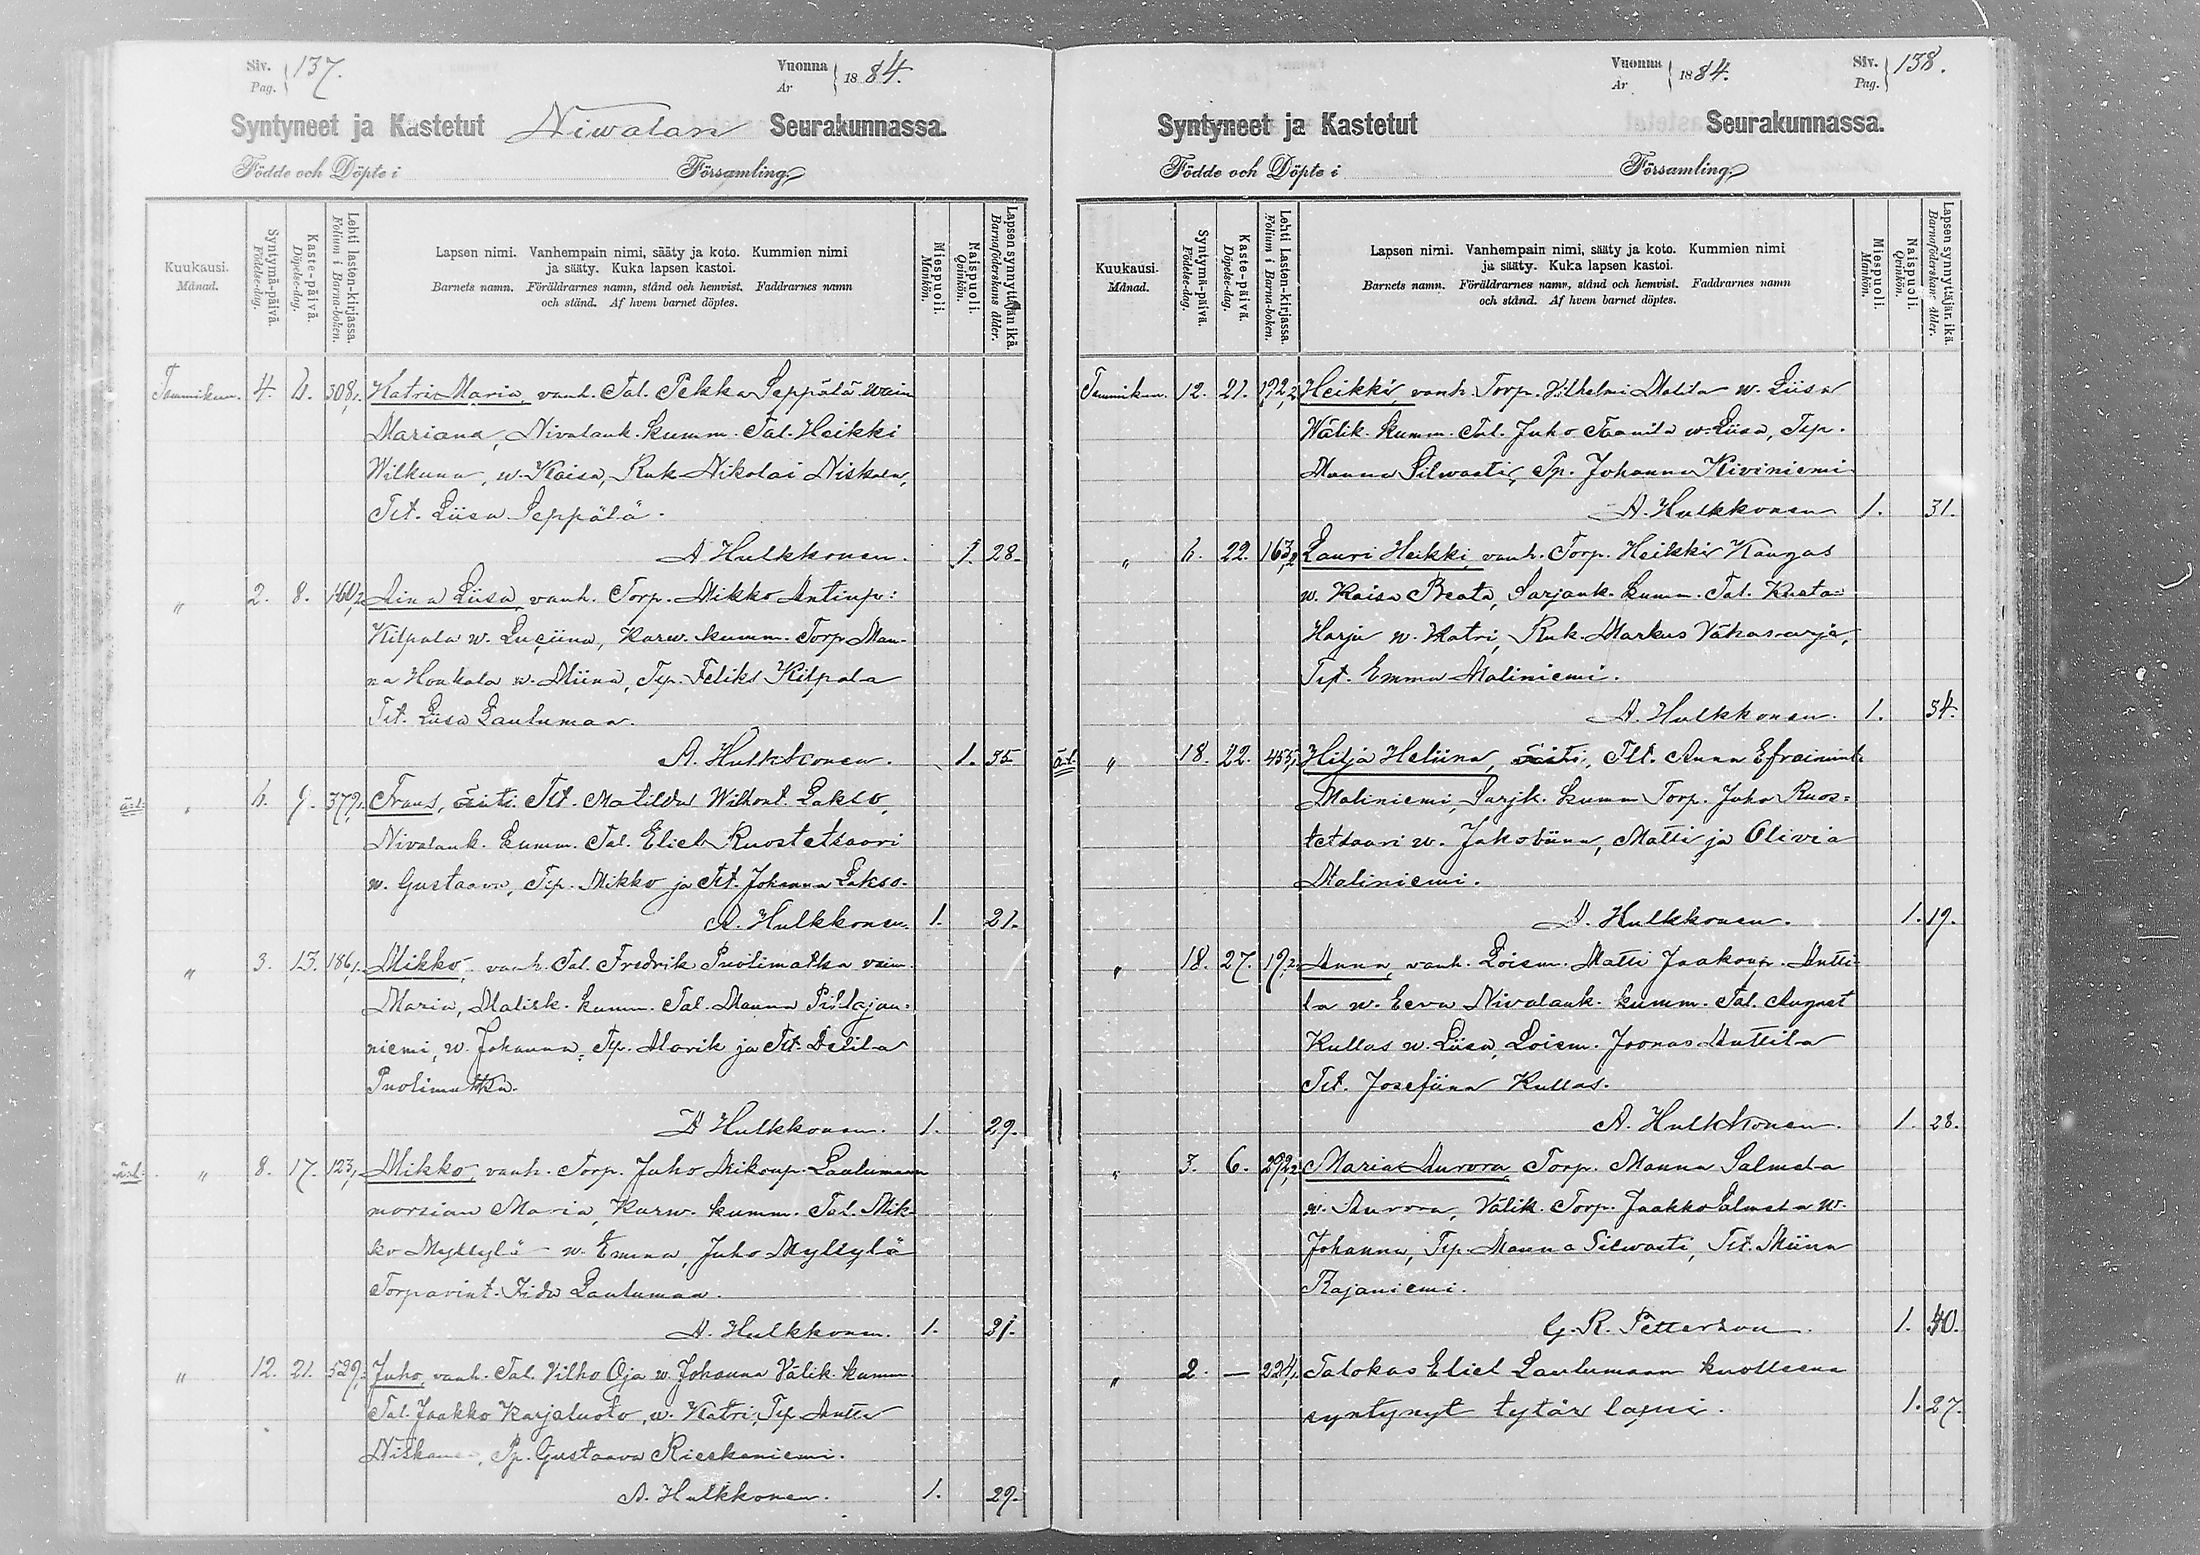 Siv. Pag. 137. Vuonna År 1884.
Syntyneet ja Kastetut Niwalan Seurakunnassa.
Födde och Döpte i Församling
Kuukausi. Månad.
Syntymä-päivä. Födelse-dag.
Kaste-päivä. Döpelse-dag.
Lehti lasten-kirjassa. Folium i Barna-boken.
Lapsen nimi. Vanhempain nimi, sääty ja koto. Kummien nimi
ja sääty. Kuka lapsen kastoi.
Barnets namn. Föräldrarnes namn, stånd och hemvist. Faddrarnes namn
och stånd. Af hvem barnet döptes.
Miespuoli. Mankön.
Naispuoli. Qvinkön.
Lapsen synnyttäjän ikä. Barnaföderskans ålder.
Tammikuu. 4. 6. 308,1. Katri Maria, vanh. Tal. Pekka Seppälä waim
Mariana, Nivalank. kumm. Tal. Heikki
Wilkuna, w. Kaisa, Ruk Nikolai Niskala,
Tit. Liisa Seppälä.
A Hulkkonen. 1. 28.
" 2. 8. 160,2 Aina Liisa, vanh. Torp. Mikko Antinp:
Kilpala w. Lusiina, Karw. kumm. Torp Man-
na Honkala w. Miina, Tsp. Feliks Kilpala
Tit. Liisa Lauluman.
A. Hulkkonen. 1. 35
ä.l. " 6. 9. 379,1. Frans, äiti Tit. Matilda Wilhont. Lakso,
Nivalank. kumm. Tal. Eliel Ruostetsaari
w. Gustaava, Tsp. Mikko ja Tit. Johanna Lakso.
A. Hulkkonen. 1. 21.
" 3. 13. 186,1. Mikko, vanh. Tal. Fredrik Puolimatka vaim.
Maria, Malisk. kumm. Tal. Manna Pihlajan-
niemi, w. Johanna, Tsp. Alarik ja Tit. Delila
Puolimatka.
A Hulkkonen. 1. 29.
ä.l. " 8. 17. 123,1 Mikko, vanh. Torp. Juho Mikonp. Laulumaan
morsian Maria, Karw. kumm. Tal. Mik-
ko Myllylä w. Emma, Juho Myllylä
Torparint. Fida Lauluman.
A. Hulkkonen. 1. 31.
" 12. 21. 529, Juho, vanh. Tal. Vilho Oja w. Johanna Välik. kumm.
Tal. Jaakko Karjaluoto, w. Katri, Tsp. Antti
Niskane, Pp. Gustaava Rieskaniemi.
A. Hulkkonen. 1. 29.
Vuonna År 1884. Siv. Pag. 138.
Syntyneet ja Kastetut Seurakunnassa.
Födde och Döpte i Församling
Kuukausi. Månad.
Syntymä-päivä. Födelse-dag.
Kaste-päivä. Döpelse-dag.
Lehti Lasten-kirjassa. Folium i Barna-boken.
Lapsen nimi. Vanhempain nimi, sääty ja koto. Kummien nimi
ja sääty. Kuka lapsen kastoi.
Barnets namn. Föräldrarnes namn, stånd och hemvist. Faddrarnes namn
och stånd. Af hvem barnet döptes.
Miespuoli. Mankön.
Naispuoli. Qvinkön.
Lapsen synnyttäjän ikä. Barnaföderskans ålder.
Tammikuu. 12. 21. 192,2 Heikki, vanh. Torp. Vilhelmi Malila w. Liisa
Wälik. kumm. Tal. Juho Taanila w. Liisa, Tsp.
Manna Silwasti, Pp. Johanna Kiviniemi
A. Hulkkonen 1. 31.
" 6. 22. 163,2 Lauri Heikki, vanh. Torp. Heikki Kangas
w. Kaisa Beata, Sarjank. kumm. Tal. Kusta-
Harju w. Katri, Ruk. Markus Vähasarja,
Tit. Emma Maliniemi.
A. Hulkkonen. 1. 34.
ä.l. " 18. 22. 453,1 Hilja Heliina, äiti, Tlt. Anna Efraimint.
Maliniemi, Sarjk. kumm Torp. Juho Ruos-
tetsaari w. Jakobiina, Matti ja Olivia
Maliniemi.
A. Hulkkonen. 1. 19.
" 18. 27. 19,2. Anna, vanh. Loism. Matti Jaakonp. Antti-
la w. Eeva Nivalank. kumm. Tal. August
Kullas w. Liisa, Loism. Joonas Anttila
Tit. Josefiina Kullas.
A. Hulkkonen. 1. 28.
" 3. 6. 292,2 Maria Aurora, Torp. Manna Salmela
w. Aurora, Välik. Torp. Jaakko Salmela w.
Johanna, Tsp. Manna Silwasti, Tit. Miina
Rajaniemi.
G. R. Petterson. 1. 40.
" 2. — 224,1 Talokas Eliel Laulumaan kuolleena
syntynyt tytär lapsi. 1. 27.